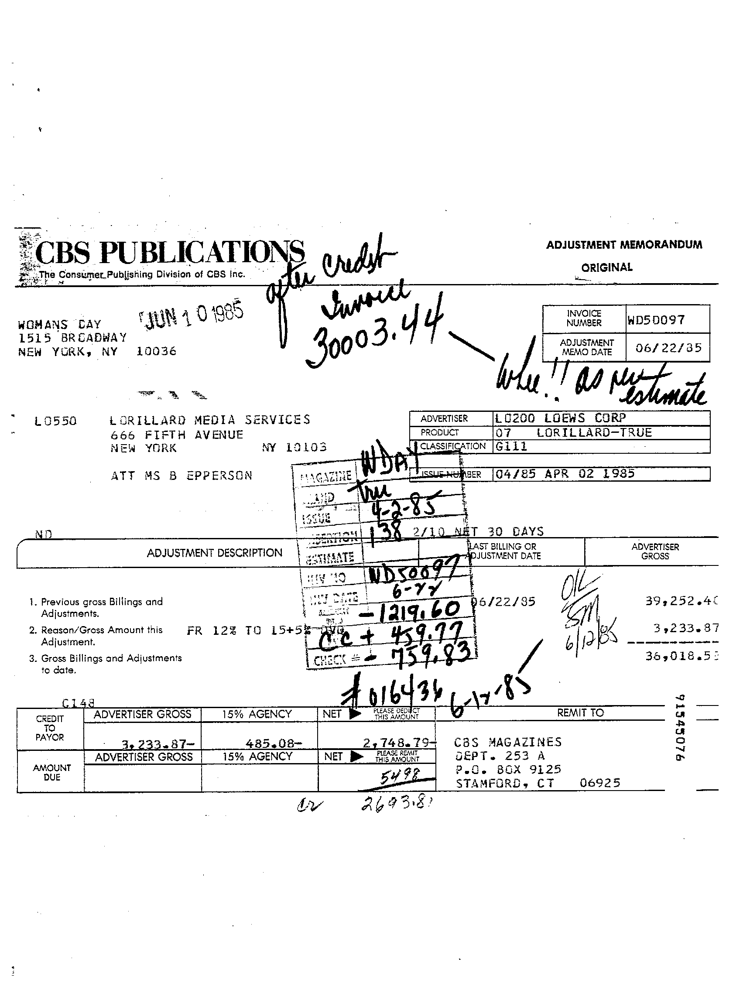 CBS PUBLICATIONS
The Consumer Publishing Division of CBS Inc.
after credit
Invoice
30003.44
ADJUSTMENT MEMORANDUM
ORIGINAL
JUN 10 1985
WOMANS DAY
1515 BROADWAY
NEW YORK, NY 10036
INVOICE NUMBER WD50097
ADJUSTMENT MEMO DATE 06/22/85
!! as per
estimate
L0550 LORILLARD MEDIA SERVICES
666 FIFTH AVENUE
NEW YORK NY 10103
ATT MS B EPPERSON
ADVERTISER L0200 LOEWS CORP
PRODUCT 07 LORILLARD-TRUE
CLASSIFICATION G111
ISSUE NUMBER 04/85 APR 02 1985
MAGAZINE WDAY
True
ISSUE 4-2-85
INSERTION 138
ESTIMATE
INV NO WD50097
INV DATE 6-22
- 1219.60
CC + 459.77
CHECK # - 759.83
# 016436 6-12-85
ND
2/10 NET 30 DAYS
ADJUSTMENT DESCRIPTION
LAST BILLING OR ADJUSTMENT DATE
ADVERTISER GROSS
1. Previous gross Billings and Adjustments.
06/22/85
39,252.40
2. Reason/Gross Amount this Adjustment.
FR 12% TO 15+5%
3,233.87
3. Gross Billings and Adjustments to date.
36,018.53
OK
SM
6/12/85
C148
CREDIT TO PAYOR
ADVERTISER GROSS 15% AGENCY NET PLEASE DEDUCT THIS AMOUNT
3,233.87- 485.08- 2,748.79-
AMOUNT DUE
ADVERTISER GROSS 15% AGENCY NET PLEASE REMIT THIS AMOUNT
5498
cr 2693.81
REMIT TO
CBS MAGAZINES
DEPT. 253 A
P.O. BOX 9125
STAMFORD, CT 06925
91545076